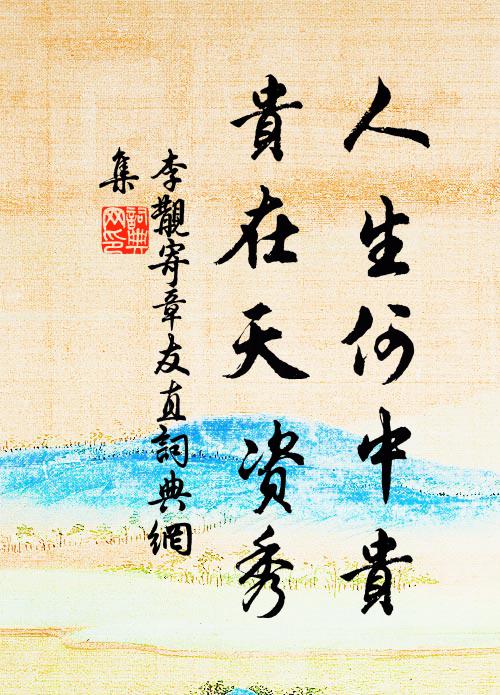 人生何中貴
貴在天資秀
李覯寄章友直詞典網
集
詞典网印